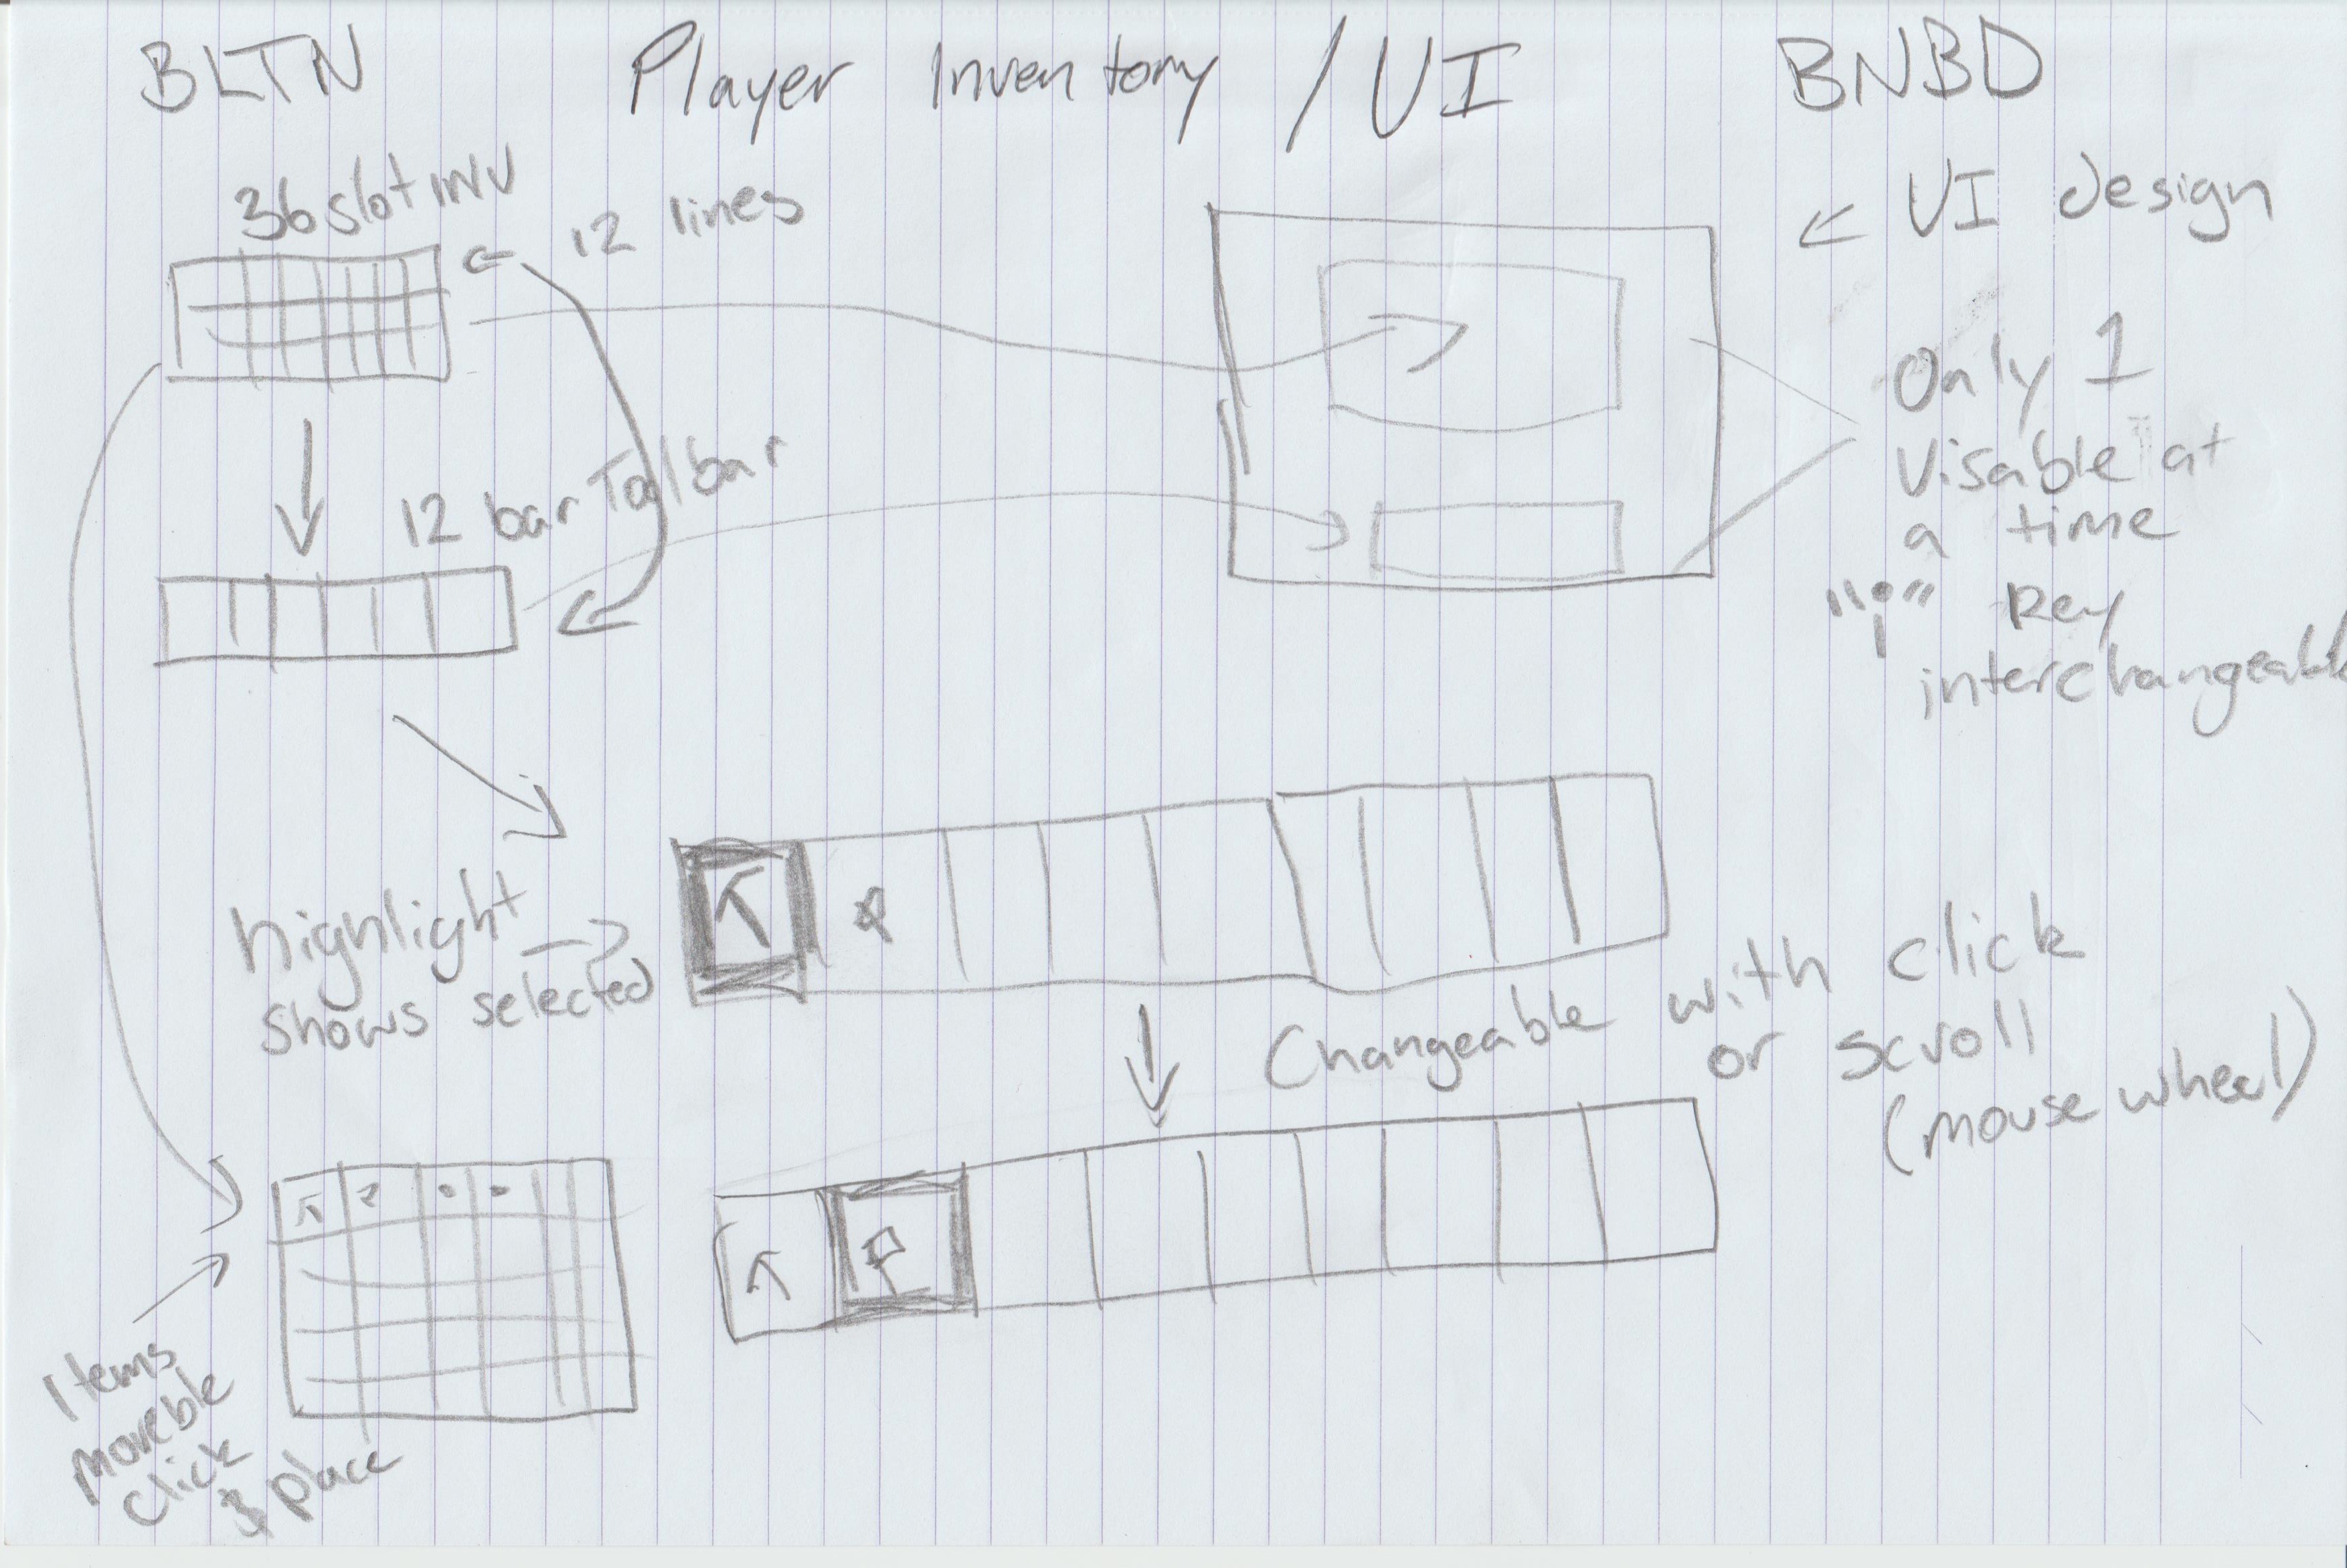 BLTN Player Inventory / UI BNBD
36 slot inv
12 lines
UI design
12 bar Toolbar
Only 1
Visable at
a time
"i" Key
interchangeable
highlight
shows selected
Changeable with click
or scroll
(mouse wheel)
Items
moveble
click
& place